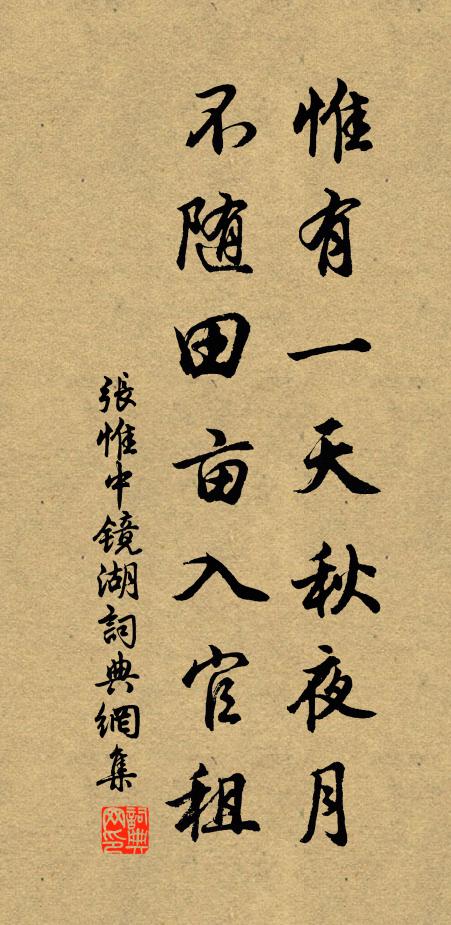 惟有一天秋夜月
不随田亩入官租
張惟中镜湖詞典網集
詞典网印